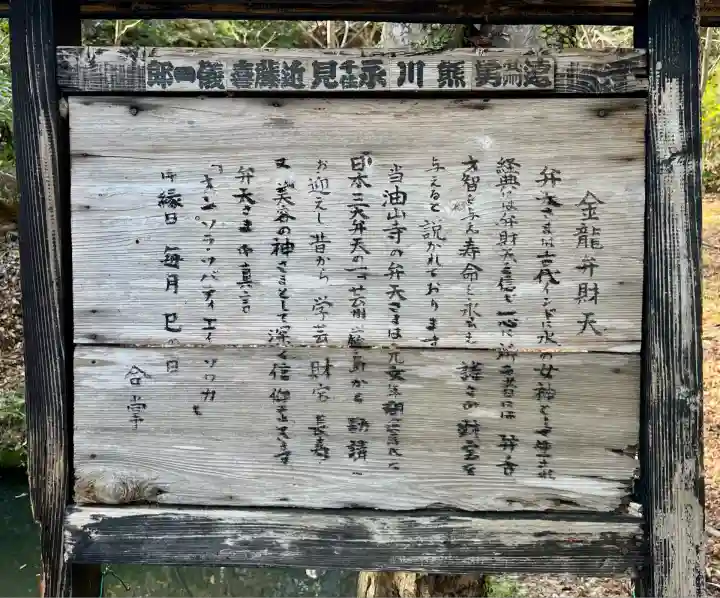 熊川永 見 近藤喜儀一郎
金龍弁財天
弁天さまは古代インドに水の女神として
経典には弁財天を信じ一心に 者には弁舌
才智を与え寿命を 諸々の財宝を
与えると説かれております
当油山寺の弁天さまは元文年
日本三大弁天の一つ芸州厳島から勧請
お迎えし昔から 学芸 財宝 長寿
又 美容の神さまとして深く信仰
弁天さま御真言
オン ソラソバテイ エイ ソワカ
御縁日 毎月 巳の日
合掌